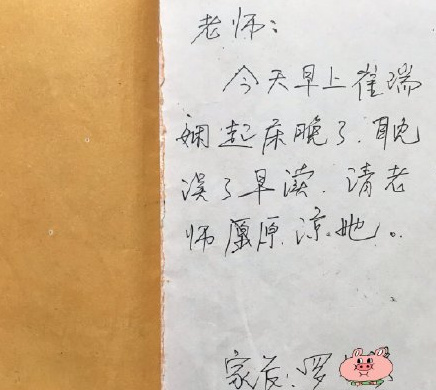 老师:
今天早上崔瑞
娴起床晚了.耽
误了早读.请老
师原.凉.她。
家长:罗